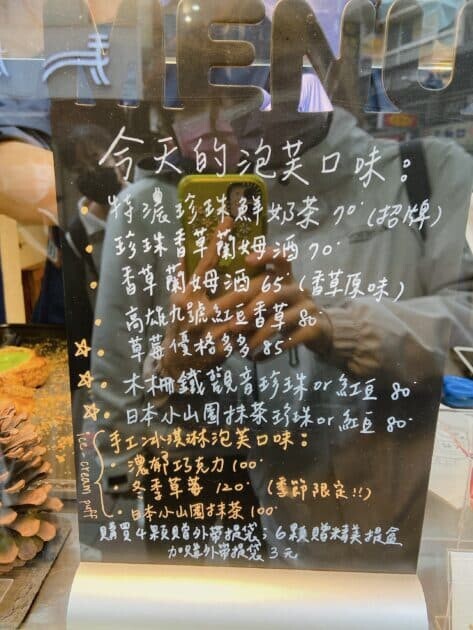 MENU
今天的泡芙口味：
特濃珍珠鮮奶茶 70（招牌）
珍珠香草蘭姆酒 70
香草蘭姆酒 65（香草原味）
高雄九號紅豆香草 80
草莓優格多多 85
木柵鐵觀音珍珠 or 紅豆 80
日本小山園抹茶珍珠 or 紅豆 80
Ice-cream puff
手工冰淇淋泡芙口味：
濃郁巧克力 100
冬季草莓 120（季節限定!!）
日本小山園抹茶 100
購買4顆贈外帶提袋；6顆贈精美提盒
加購外帶提袋 3元